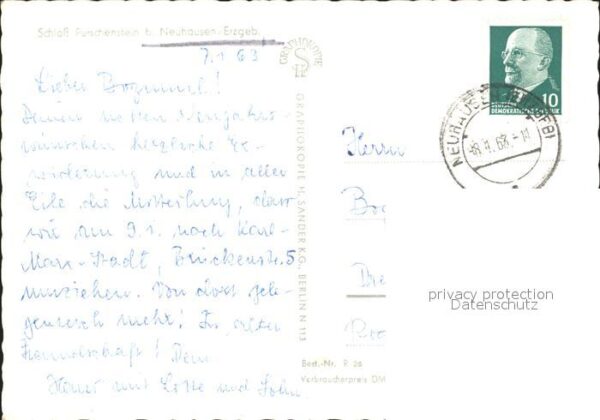 Schloß Purschenstein b. Neuhausen-Erzgeb.
7.1.63
Lieber Bogumil!
Deinen netten Neujahrs
wünschen herzliche Er-
widerung und in aller
Eile die Mitteilung, dass
wir am 9.1. nach Karl-
Marx-Stadt, Brückenstr. 5
umziehen. Von dort gele-
gentlich mehr! In alter
Freundschaft! Dein
mit Lotte und Sohn.
GRAPHOKOPIE
GRAPHOKOPIE H. SANDER K.G., BERLIN N 113
Best.-Nr. R 26
Verbraucherpreis DM
10
DEUTSCHE DEMOKRATISCHE REPUBLIK
NEUHAUSEN (ERZGEB)
Herrn
Bog
Dre
privacy protection
Datenschutz